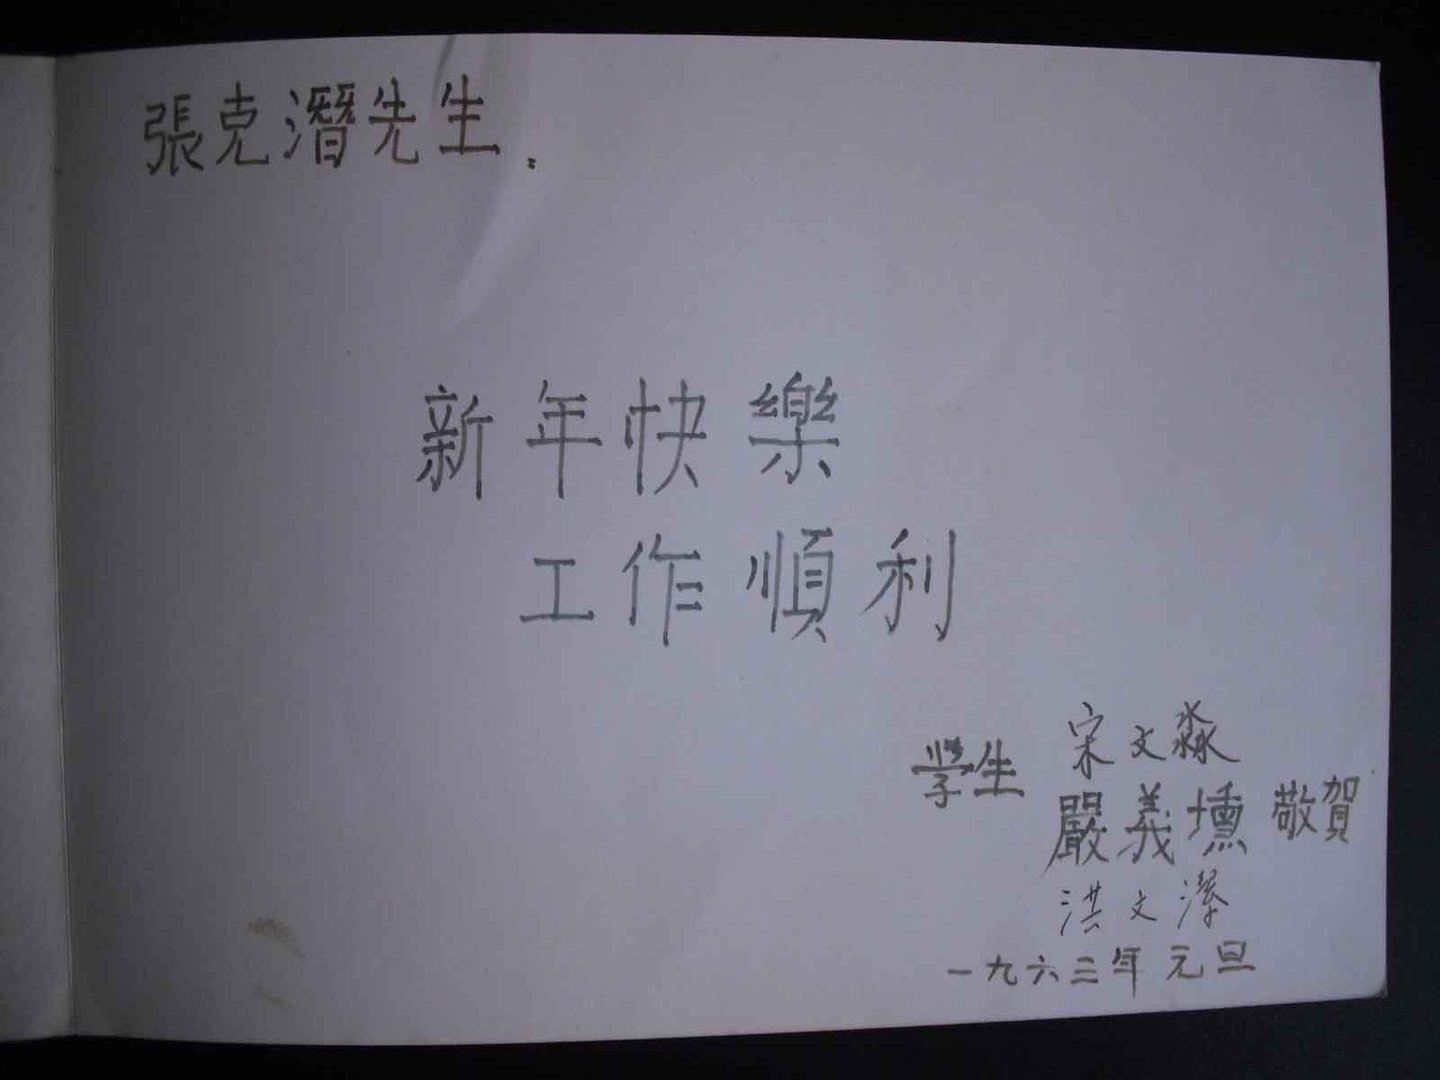 張克潛先生：
新年快樂
工作順利
學生 宋文淼
嚴義壎 敬賀
洪文潔
一九六三年 元旦